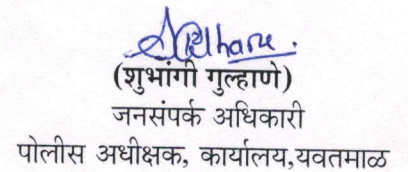 (शुभांगी गुल्हाणे)
जनसंपर्क अधिकारी
पोलीस अधीक्षक, कार्यालय,यवतमाळ